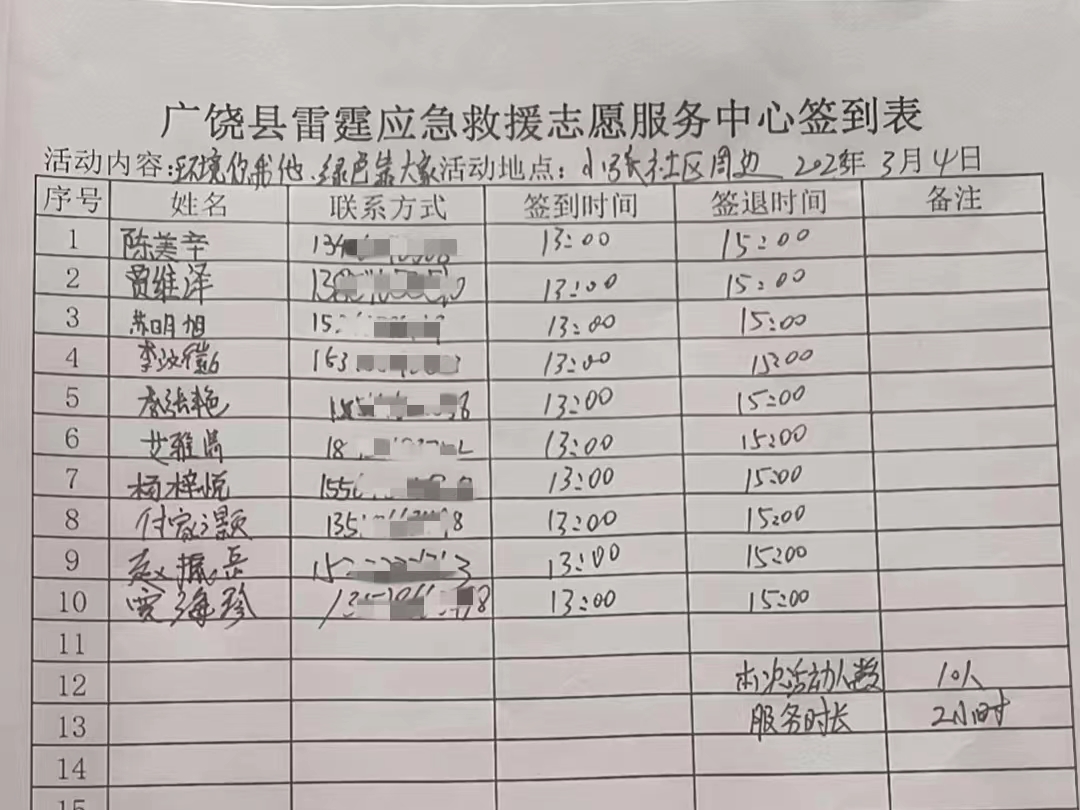 广饶县雷霆应急救援志愿服务中心签到表
活动内容:环境你我他、绿色靠大家 活动地点:小张社区周边 2023年 3月4日
序号 姓名 联系方式 签到时间 签退时间 备注
1 陈美辛 13:00 15:00
2 贾维泽 13:00 15:00
3 苏明旭 13:00 15:00
4 13:00 15:00
5 13:00 15:00
6 13:00 15:00
7 杨梓悦 13:00 15:00
8 付家灏 13:00 15:00
9 赵振岳 13:00 15:00
10 贾海珍 13:00 15:00
11
12 本次活动人数 10人
13 服务时长 2小时
14
15